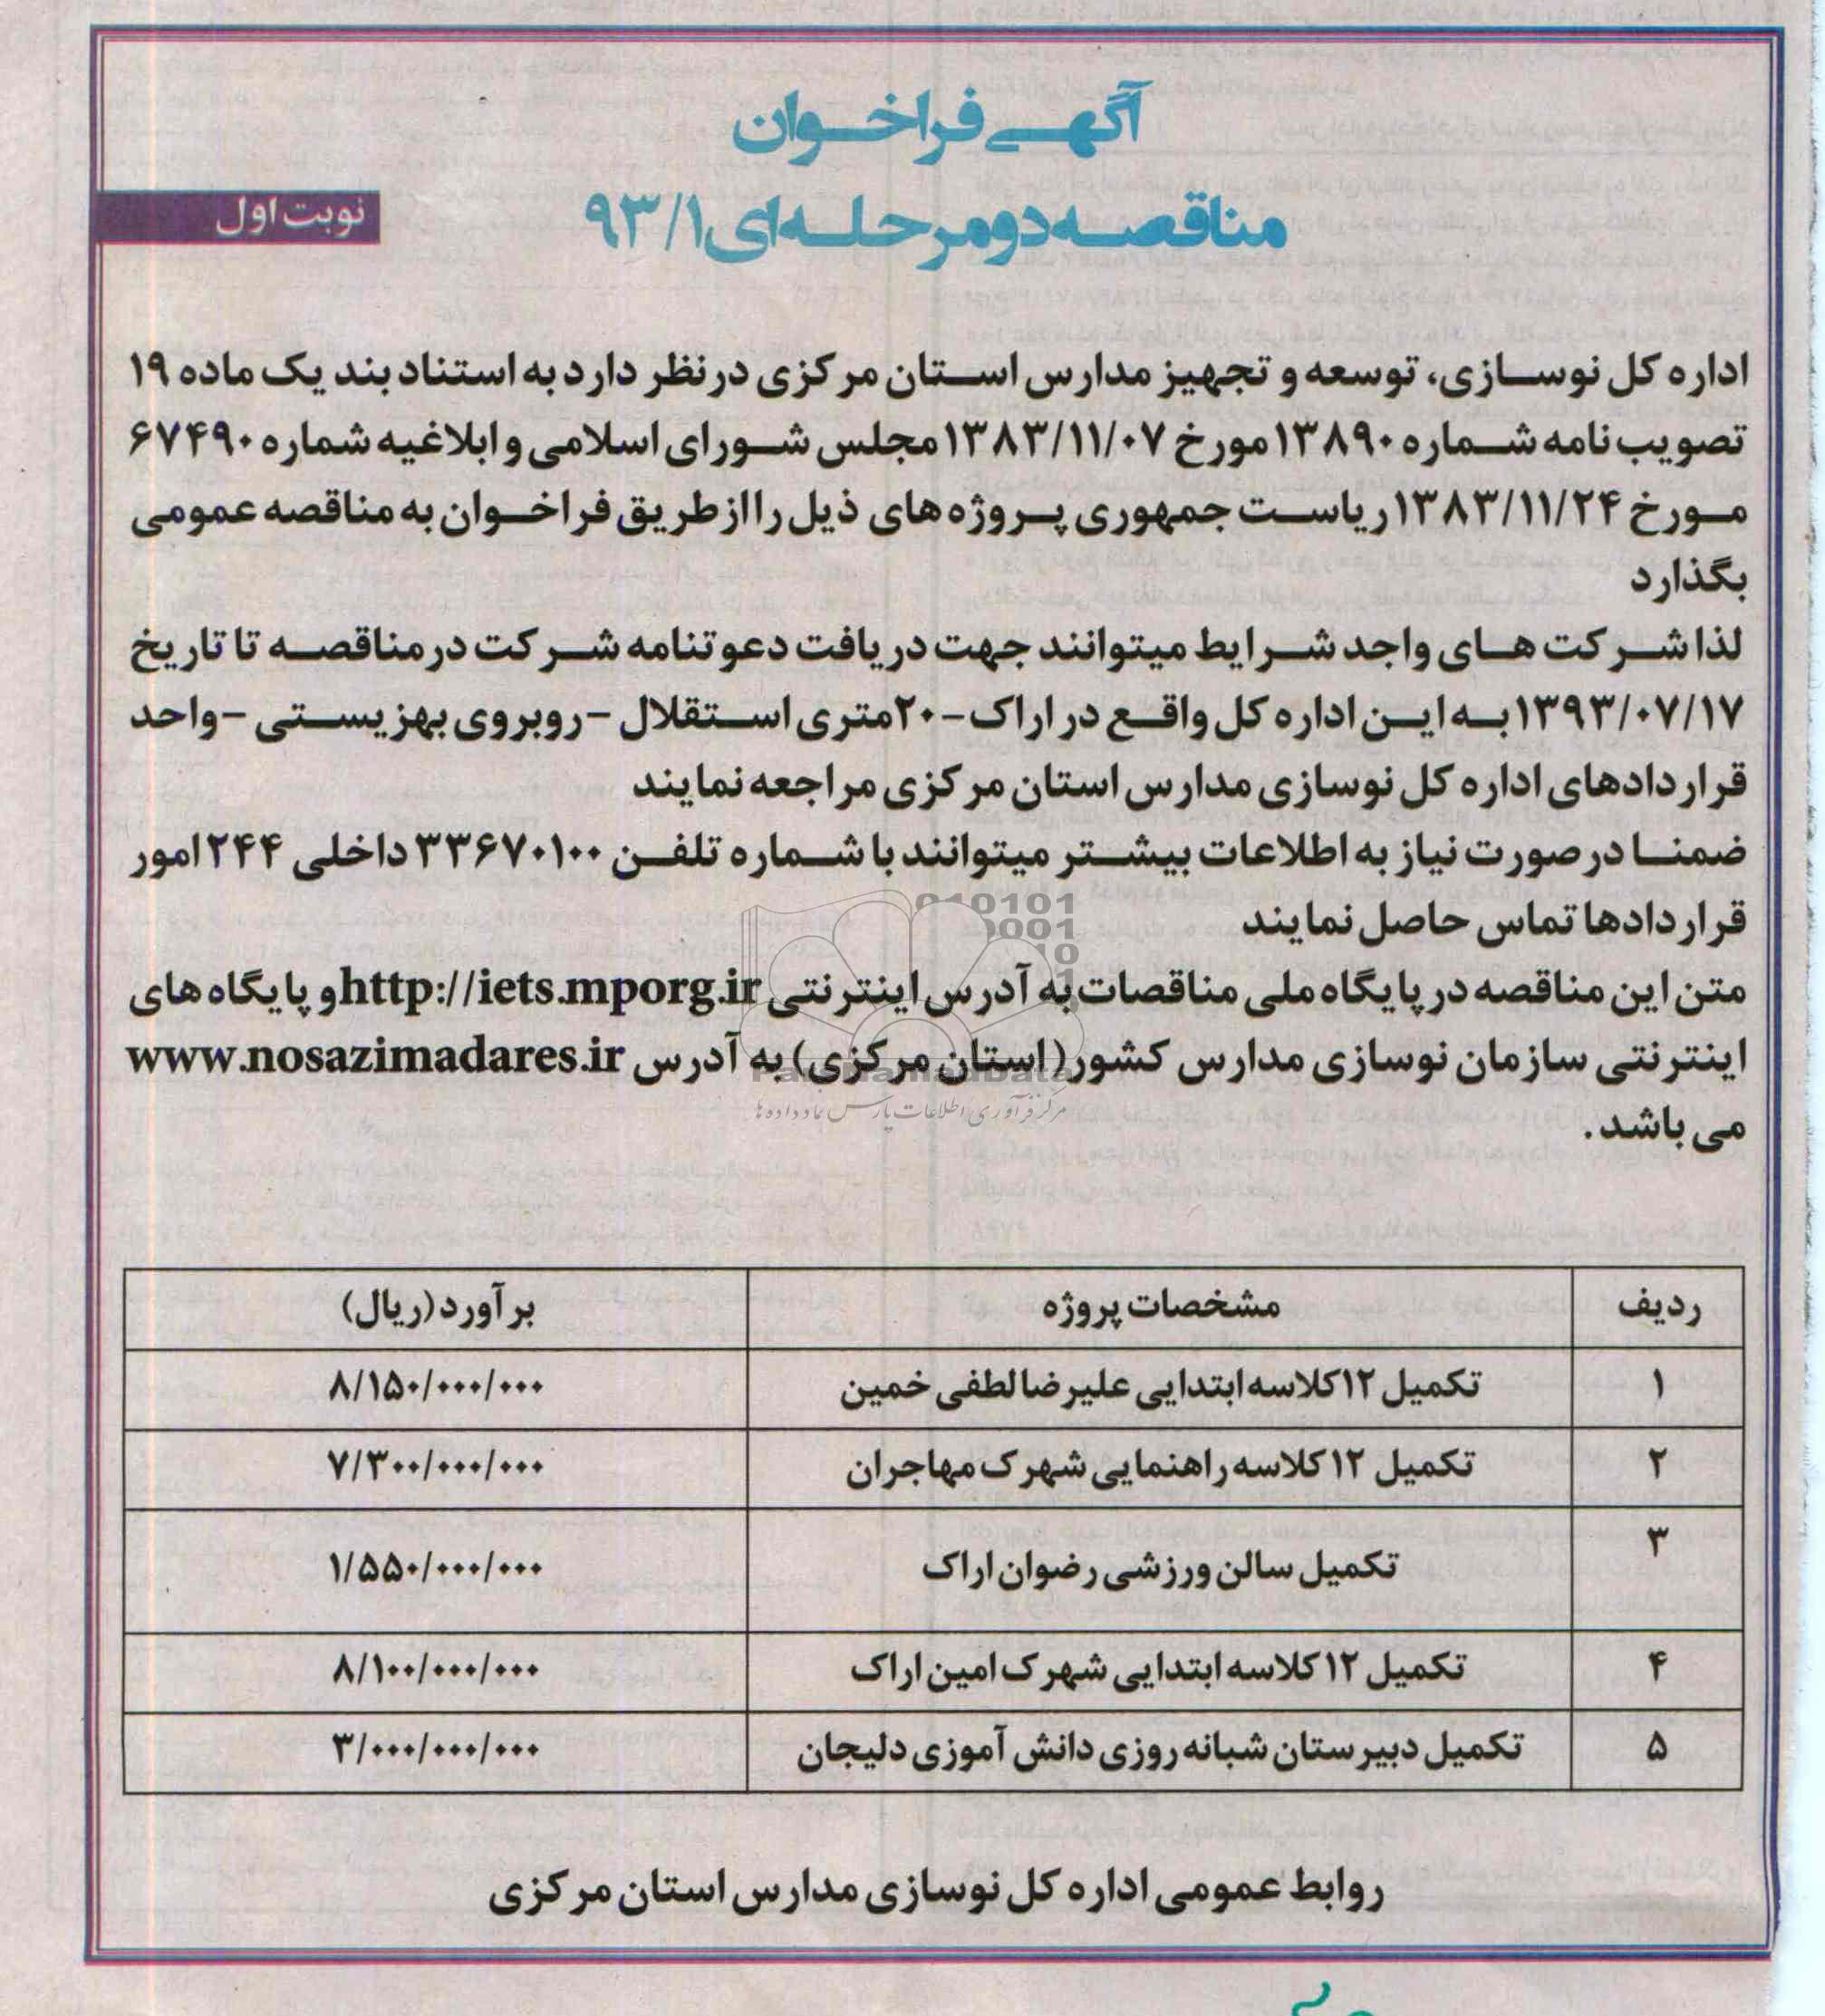 آگهی فراخوان
مناقصه دو مرحله ای ۹۳/۱
نوبت اول
اداره کل نوسازی، توسعه و تجهیز مدارس استان مرکزی در نظر دارد به استناد بند یک ماده ۱۹
تصویب نامه شماره ۱۳۸۹۰ مورخ ۱۳۸۳/۱۱/۰۷ مجلس شورای اسلامی و ابلاغیه شماره ۶۷۴۹۰
مورخ ۱۳۸۳/۱۱/۲۴ ریاست جمهوری پروژه های ذیل را از طریق فراخوان به مناقصه عمومی
بگذارد
لذا شرکت های واجد شرایط میتوانند جهت دریافت دعوتنامه شرکت در مناقصه تا تاریخ
۱۳۹۳/۰۷/۱۷ به این اداره کل واقع در اراک – ۲۰ متری استقلال – روبروی بهزیستی – واحد
قراردادهای اداره کل نوسازی مدارس استان مرکزی مراجعه نمایند
ضمنا در صورت نیاز به اطلاعات بیشتر میتوانند با شماره تلفن ۳۳۶۷۰۱۰۰ داخلی ۲۴۴ امور
قراردادها تماس حاصل نمایند
متن این مناقصه در پایگاه ملی مناقصات به آدرس اینترنتی http://iets.mporg.ir و پایگاه های
اینترنتی سازمان نوسازی مدارس کشور (استان مرکزی) به آدرس www.nosazimadares.ir
می باشد.
ردیف مشخصات پروژه برآورد (ریال)
۱ تکمیل ۱۲ کلاسه ابتدایی علیرضا لطفی خمین ۸/۱۵۰/۰۰۰/۰۰۰
۲ تکمیل ۱۲ کلاسه راهنمایی شهرک مهاجران ۷/۳۰۰/۰۰۰/۰۰۰
۳ تکمیل سالن ورزشی رضوان اراک ۱/۵۵۰/۰۰۰/۰۰۰
۴ تکمیل ۱۲ کلاسه ابتدایی شهرک امین اراک ۸/۱۰۰/۰۰۰/۰۰۰
۵ تکمیل دبیرستان شبانه روزی دانش آموزی دلیجان ۳/۰۰۰/۰۰۰/۰۰۰
روابط عمومی اداره کل نوسازی مدارس استان مرکزی